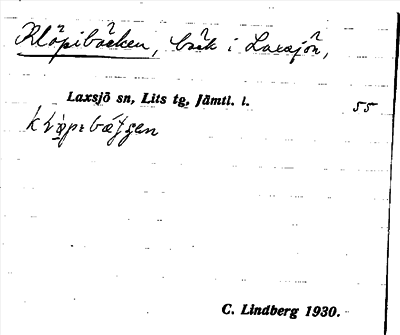 Klöpibäcken, bäck i Laxsjön,
Laxsjö sn, Lits tg, Jämtl. l. 55
C. Lindberg 1930.